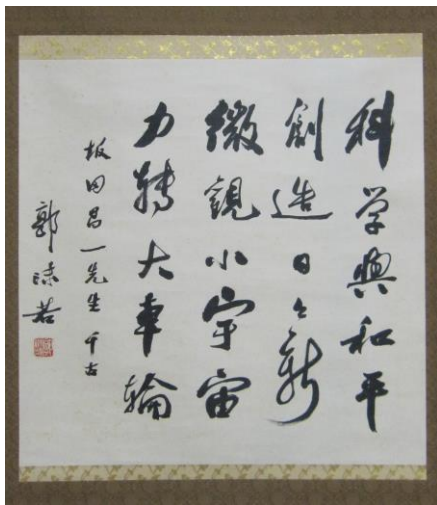 科学與和平
創造日々新
微觀小宇宙
力轉大車輪
板田昌一先生 千古
郭沫若